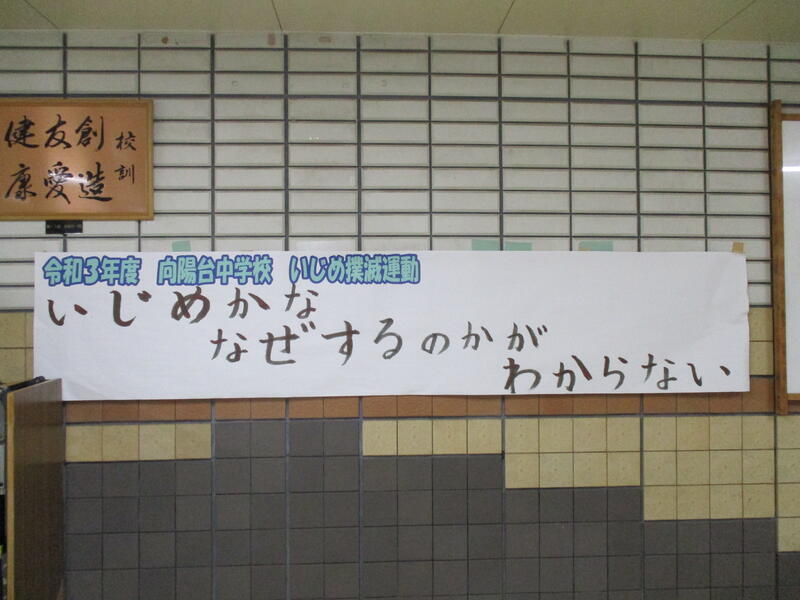 校訓
創造
友愛
健康
令和3年度 向陽台中学校 いじめ撲滅運動
いじめかな
なぜするのかが
わからない